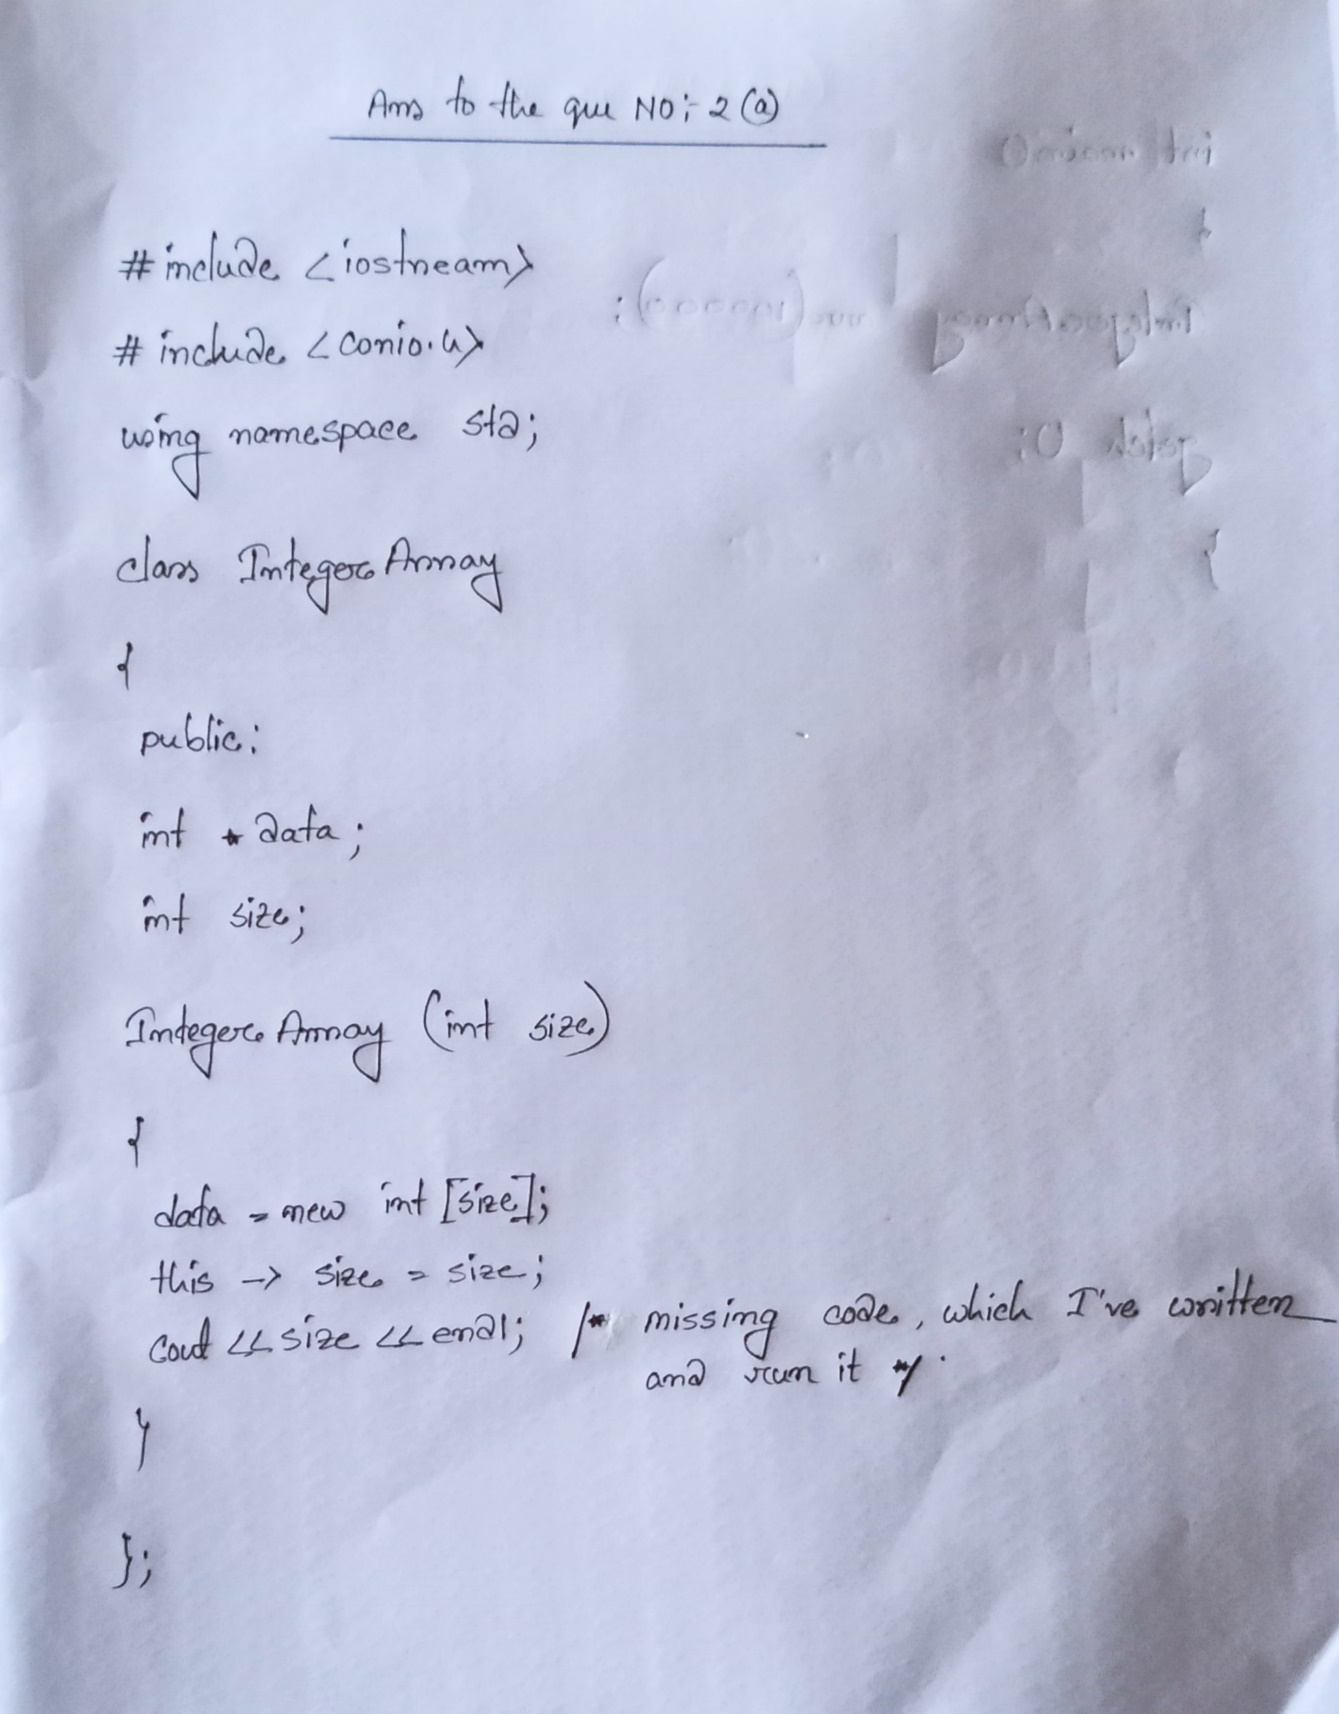 Ans to the que NO:- 2(a)
#include <iostream>
#include <conio.h>
using namespace std;
class IntegerArray
{
public:
int *data;
int size;
IntegerArray (int size)
{
data = new int [size];
this -> size = size;
cout << size << endl; /* missing code, which I've written
and run it */
}
};
int main()
{
IntegerArray arr(10000);
getch ();
}